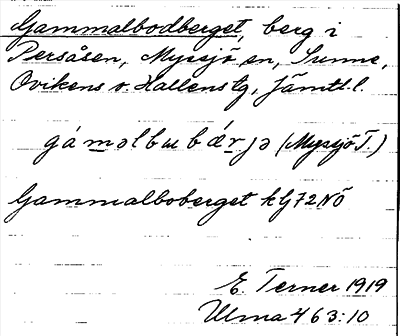 Gammalbodberget, berg i
Persåsen, Myssjö sn, Sunne,
Ovikens o. Hallens tg, Jämtl. l.
gámǝlbɯbǽrjǝ (Myssjö T.)
Gammalboberget k G72NÖ
E. Terner 1919
Ulma 463:10